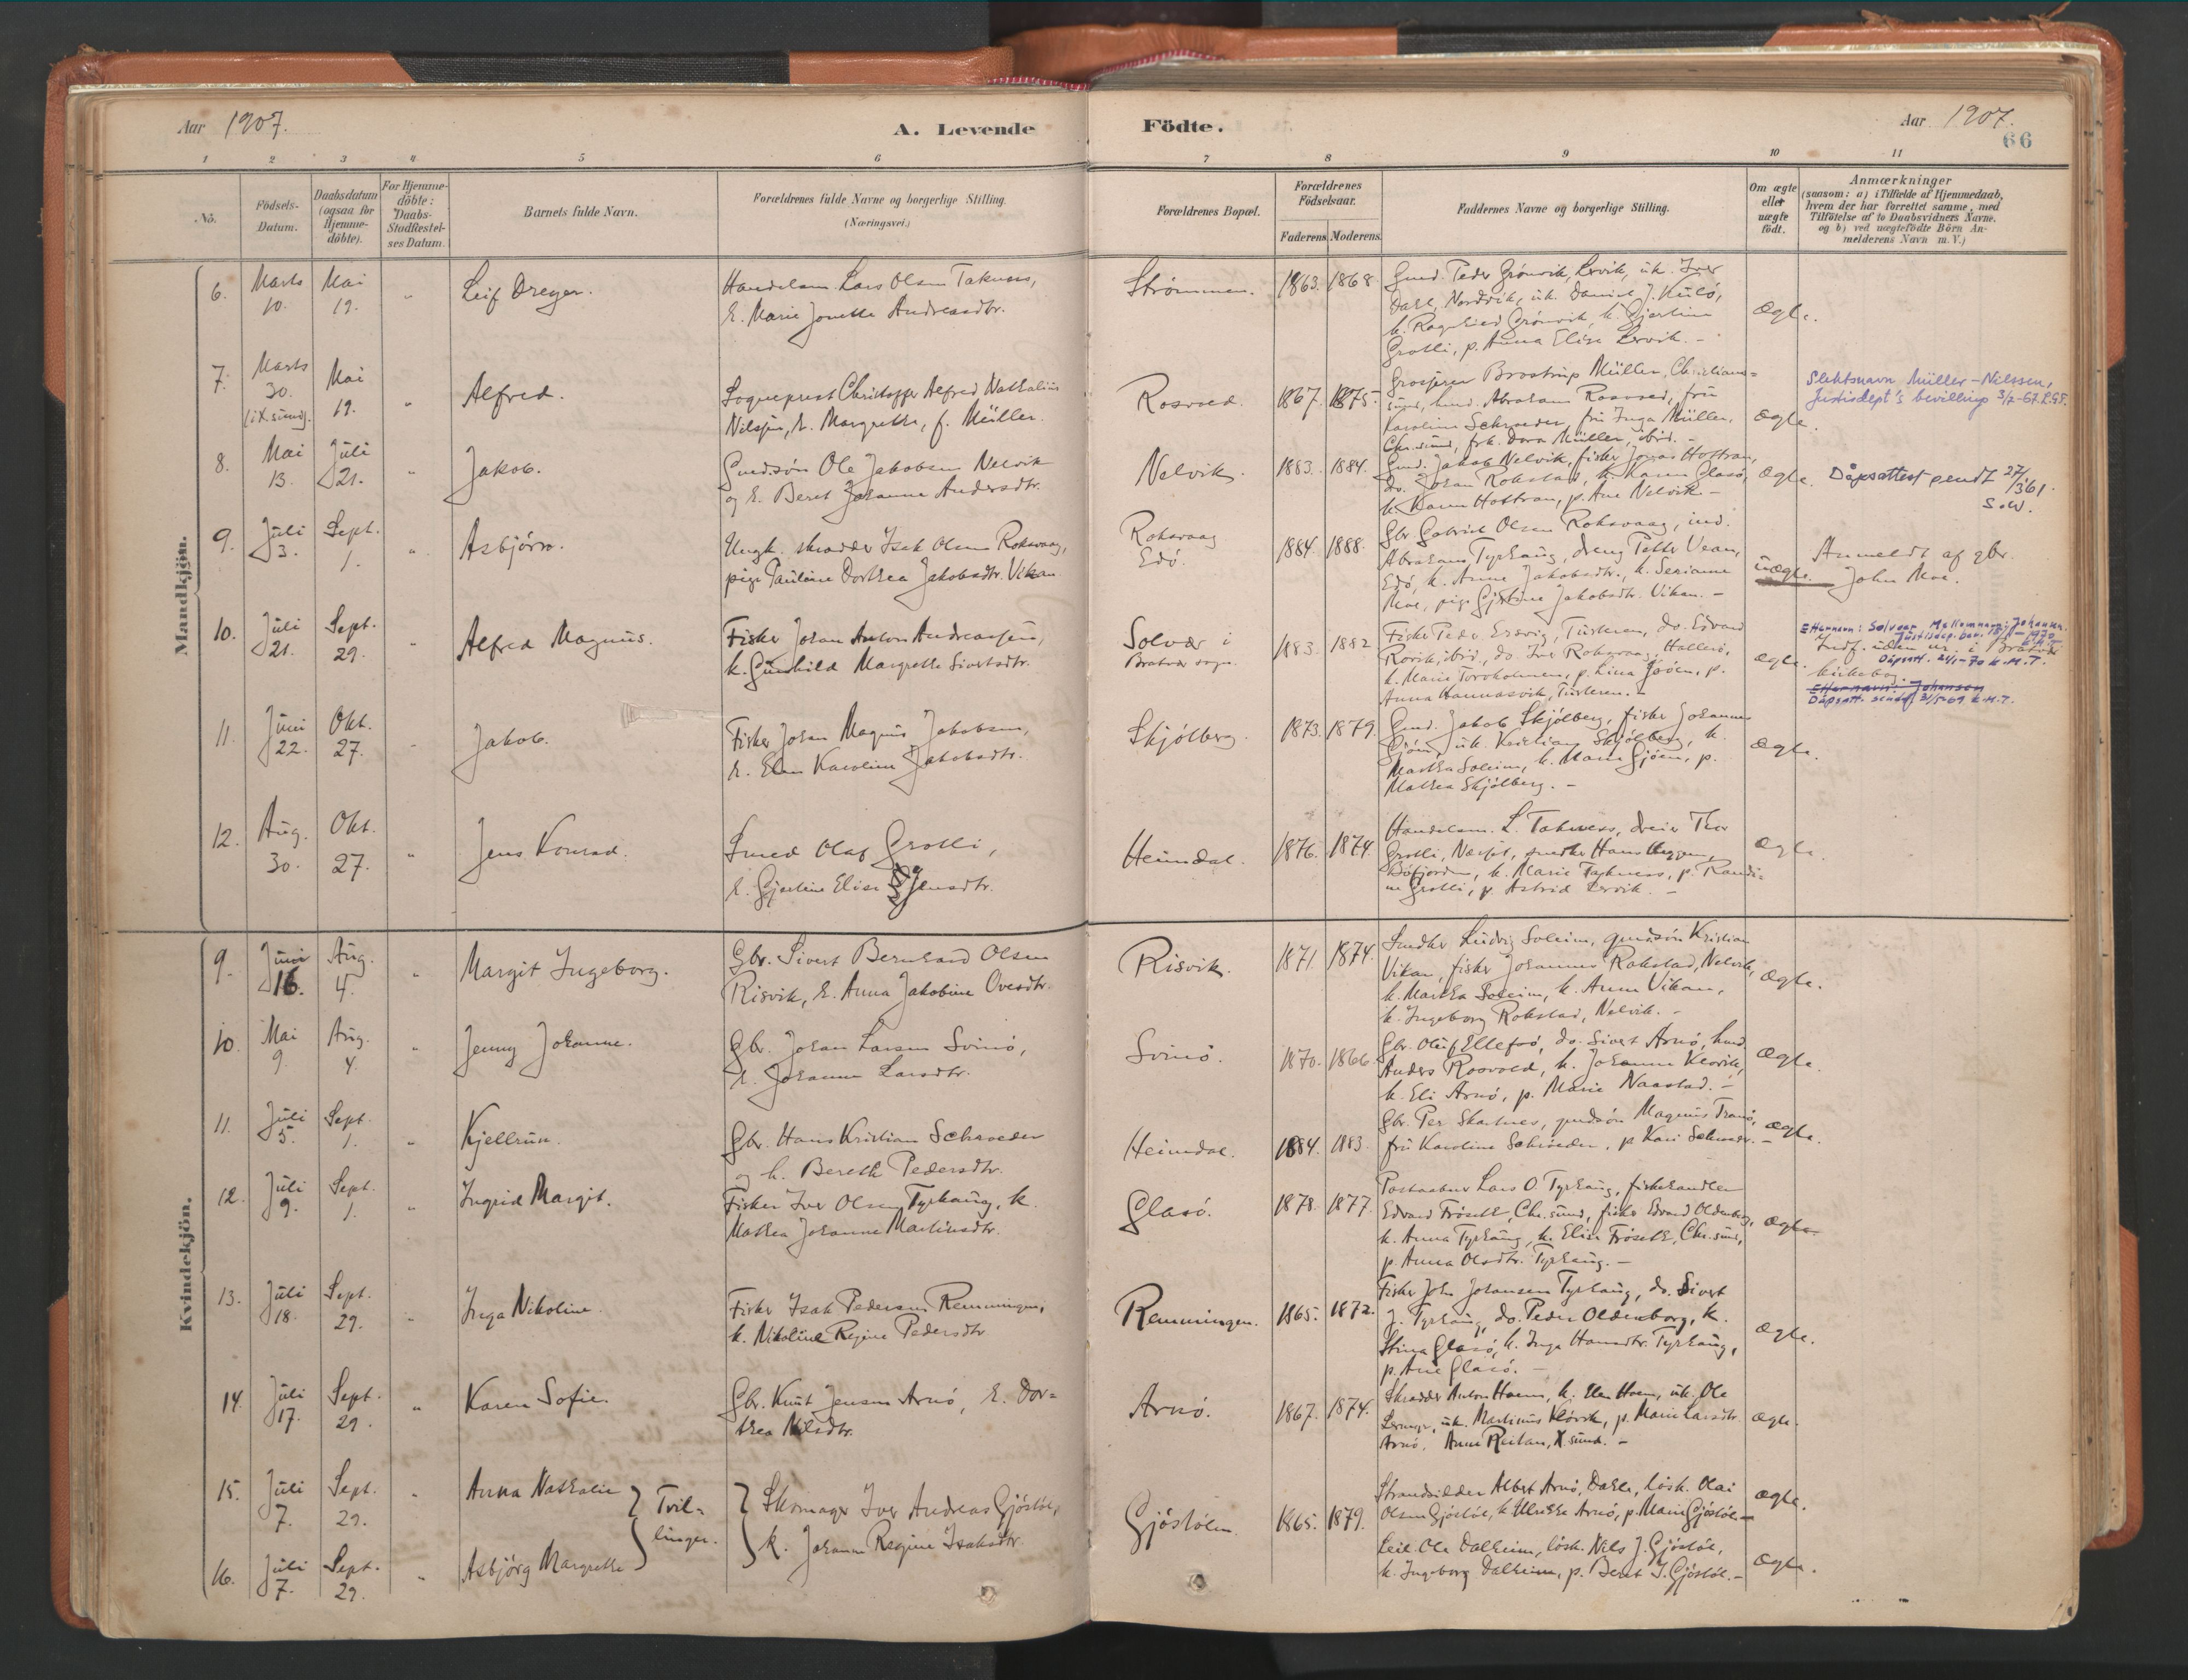 Aar 1907.
A. Levende
Födte.
Aar 1907.
66
1 2 3 4 5 6 7 8 9 10 11
No.
Födsels-
Datum.
Daabsdatum
(ogsaa for
Hjemme-
döbte).
For Hjemme-
döbte:
Daabs-
Stadfæstel-
ses Datum.
Barnets fulde Navn.
Forældrenes fulde Navne og borgerlige Stilling.
(Næringsvei.)
Forældrenes Bopæl.
Forældrenes
Födselsaar.
Faderens. Moderens.
Faddernes Navne og borgerlige Stilling.
Om ægte
eller
uægte
födt.
Anmærkninger
(saasom: a) i Tilfælde af Hjemmedaab,
hvem der har forrettet samme, med
Tilföielse af to Daabsvidners Navne.
og b) ved uægtefödte Börn An-
melderens Navn m. V.)
Mandkjön.
6. Marts 10. Mai 19. " Leif Dreyer.
Handelsm. Lars Olsen Taknes,
k. Marie Jonette Andreasdtr.
Strømmen. 1863. 1868
Gmd. Peder Grönvik, Lervik, uk. Iver
Dahl, Nordvik, uk. Daniel J. Kulö,
k. Ragnhild Grönvik, k. Gjertine
Grotli, p. Anna Elise Lervik. -
Ægte.
7. Marts 30. (i X.sund). Mai 19. " Alfred.
Sogneprest Christoffer Alfred Nathalius
Nilssen, k. Margrethe, f. Müller.
Rosvold. 1867. 1875.
Grosserer Brostrup Müller, Christians=
sund, hmd. Abraham Rosvold, fru
Karoline Schrøder, fru Inga Müller,
Chr.sund, frk. Dora Müller, ibid. -
Ægte.
Slektsnavn Müller-Nilssen,
Justisdept's bevilling 3/2-67. R.G.S.
8. Mai 13. Juli 21. " Jakob.
Gmdsön Ole Jakobsen Nelvik
og k. Beret Johanna Andersdtr.
Nelvik. 1883. 1884.
Gmd. Jakob Nelvik, fisker Jonas Hostran,
do. Johan Rokstad, k. Karen Glasö,
k. Karen Hostran, p. Ane Nelvik. -
Ægte.
Dåpsattest sendt 27/3 61.
S.W.
9. Juli 3. Sept. 1. " Asbjörn.
Ungk. skrædder Isak Olsen Roksvaag,
pige Pauline Dorthea Jakobsdtr. Vikan.
Roksvaag
Edö. 1884. 1888.
Gbr. Gabriel Olsen Roksvaag, ind.
Abraham Tyrhaug, dreng Petter Vean,
Edö, k. Anne Jakobsdtr., k. Serianna
Moe, pige Gjertine Jakobsdtr. Vikan. -
uægte.
Anmeldt af gbr.
John Moe.
10. Juli 21. Sept. 29. " Alfred Magnus.
Fisker Johan Anton Andreassen,
k. Gunhild Margrethe Sivertsdtr.
Solvær i
Bratvær sogn. 1883. 1882
Fisker Peder Ersvig, Tusteren, do. Edvard
Rovik, ibid., do. Iver Roksvaag, Hallerö,
k. Marie Torvholmen, p. Lina
Anna Hannasvik, Tusteren. -
ægte.
Etternavn: Solvær Mellomnavn: Johansen.
Justisdep. bev. 1970
Indf. uden nr. i Bratvær
Dåpsatt. 24/1-70 k.M.T.
kirkebog.
Etternavn: Johansen
Dåpsatt. sendt 31/5-69 k.M.T.
11. Juni 22. Okt. 27. " Jakob.
Fisker Johan Magnus Jakobsen,
k. Elen Karoline Jakobsdtr.
Skjölberg. 1873. 1879.
Gmd. Jakob Skjölberg, fisker Johannes
Gjöen, uk. Kristian Skjölberg, k.
Martha Soleim, k. Maren Gjöen, p.
Mathea Skjölberg. -
Ægte.
12. Aug. 30. Okt. 27. " Jens Konrad.
Smed Olaf Grotli,
k. Gjertine Elise Jensdtr.
Heimdal. 1876. 1874.
Handelsm. L. Taknes, dreier Thor
Grotli, snedker Hans
Böfjorden, k. Marie Taknes, p. Randi=
ne Grotli, p. Astrid Lervik. -
Ægte.
Kvindekjön.
9. Juni 16. Aug. 4. " Margit Ingeborg.
Gbr. Sivert Bernhard Olsen
Risvik, k. Anna Jakobine Ovesdtr.
Risvik. 1871. 1874.
Snedker Ludvig Soleim, gmdsön Kristian
Vikan, fisker Johannes Rokstad, Nelvik,
k. Martha Soleim, k. Anne Vikan,
k. Ingeborg Rokstad, Nelvik. -
Ægte.
10. Mai 9. Aug. 4. " Jenny Johanne.
Gbr. Johan Larsen Svinö,
k. Johanna Larsdtr.
Svinö. 1870. 1866.
Gbr. Oluf Ellefsö, do. Sivert Arnö, hmd.
Anders Rosvold, k. Johanna
k. Eli Arnö, p. Marie Naastad. -
Ægte.
11. Juli 5. Sept. 1. " Kjellrun.
Gbr. Hans Kristian Schroeder
og k. Bereth Pedersdtr.
Heimdal. 1884. 1883.
Gbr. Per Skarsnes, gmdsön Magnus Tranö,
fru Karoline Schroeder, p. Kari Schroeder. -
ægte.
12. Juli 9. Sept. 1. " Ingrid Margit.
Fisker Iver Olsen Tyrhaug, k.
Mathea Johanne Martinsdtr.
Glasö. 1878. 1877.
Postaabner Lars O. Tyrhaug, fiskehandler
Edvard Fröseth, Chr.sund, fisker Edvard Oldenborg,
k. Anna Tyrhaug, k. Elise Fröseth, Chr.sund,
p. Anna Olsdtr. Tyrhaug. -
Ægte
13. Juli 18. Sept. 29. " Inga Nikoline.
Fisker Isak Pedersen Remmingen,
k. Nikoline Regine Pedersdtr
Remmingen. 1865. 1872.
Fisker John Johansen Tyrhaug, do. Sivert
J. Tyrhaug, do. Peder Oldenborg, k.
Stina Glasö, k. Inga Hansdtr. Tyrhaug,
p. Ane Glasö. -
Ægte.
14. Juli 17. Sept. 29. " Karen Sofie.
Gbr. Knut Jensen Arnö, k. Dor=
thea Nilsdtr.
Arnö. 1867. 1874.
Skrædder Anton Hoem, k. Elen Hoem, uk. Ole
uk. Martinus p. Marie Larsdtr.
Arnö. Anne Reitan, X.sund. -
Ægte.
15. Juli 7. Sept. 29. " Anna Nathalie
16. Juli 7. Sept. 29. " Asbjörg Margrethe
Tvil=
linger.
Skomager Iver Andreas Gjöstöl,
k. Johanna Regine Isaksdtr.
Gjöstölen. 1865. 1879.
Strandsidder Albert Arnö, Dahle, lösk. Olai
Olsen Gjöstöl, k. Ulrikke Arnö, p. Marie Gjöstöl. -
Ægte.
Leil. Ole Dalheim, lösk. Nils J. Gjöstöl,
k. Ingeborg Dalheim, p. Beret I. Gjöstöl. -
Ægte.